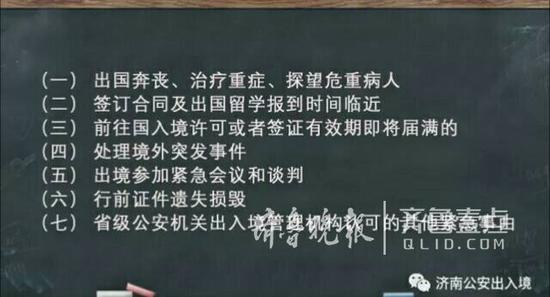 （一） 出国奔丧、治疗重症、探望危重病人
（二） 签订合同及出国留学报到时间临近
（三） 前往国入境许可或者签证有效期即将届满的
（四） 处理境外突发事件
（五） 出境参加紧急会议和谈判
（六） 行前证件遗失损毁
（七） 省级公安机关出入境管理机构认可的其他紧急事由
齐鲁晚报 齐鲁壹点
QLID.COM
济南公安出入境